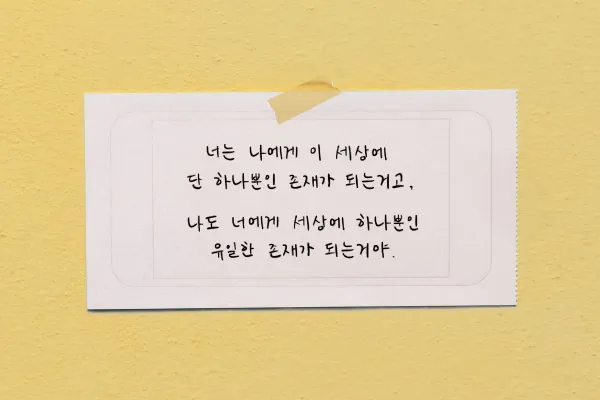 너는 나에게 이 세상에
단 하나뿐인 존재가 되는거고,
나도 너에게 세상에 하나뿐인
유일한 존재가 되는거야.